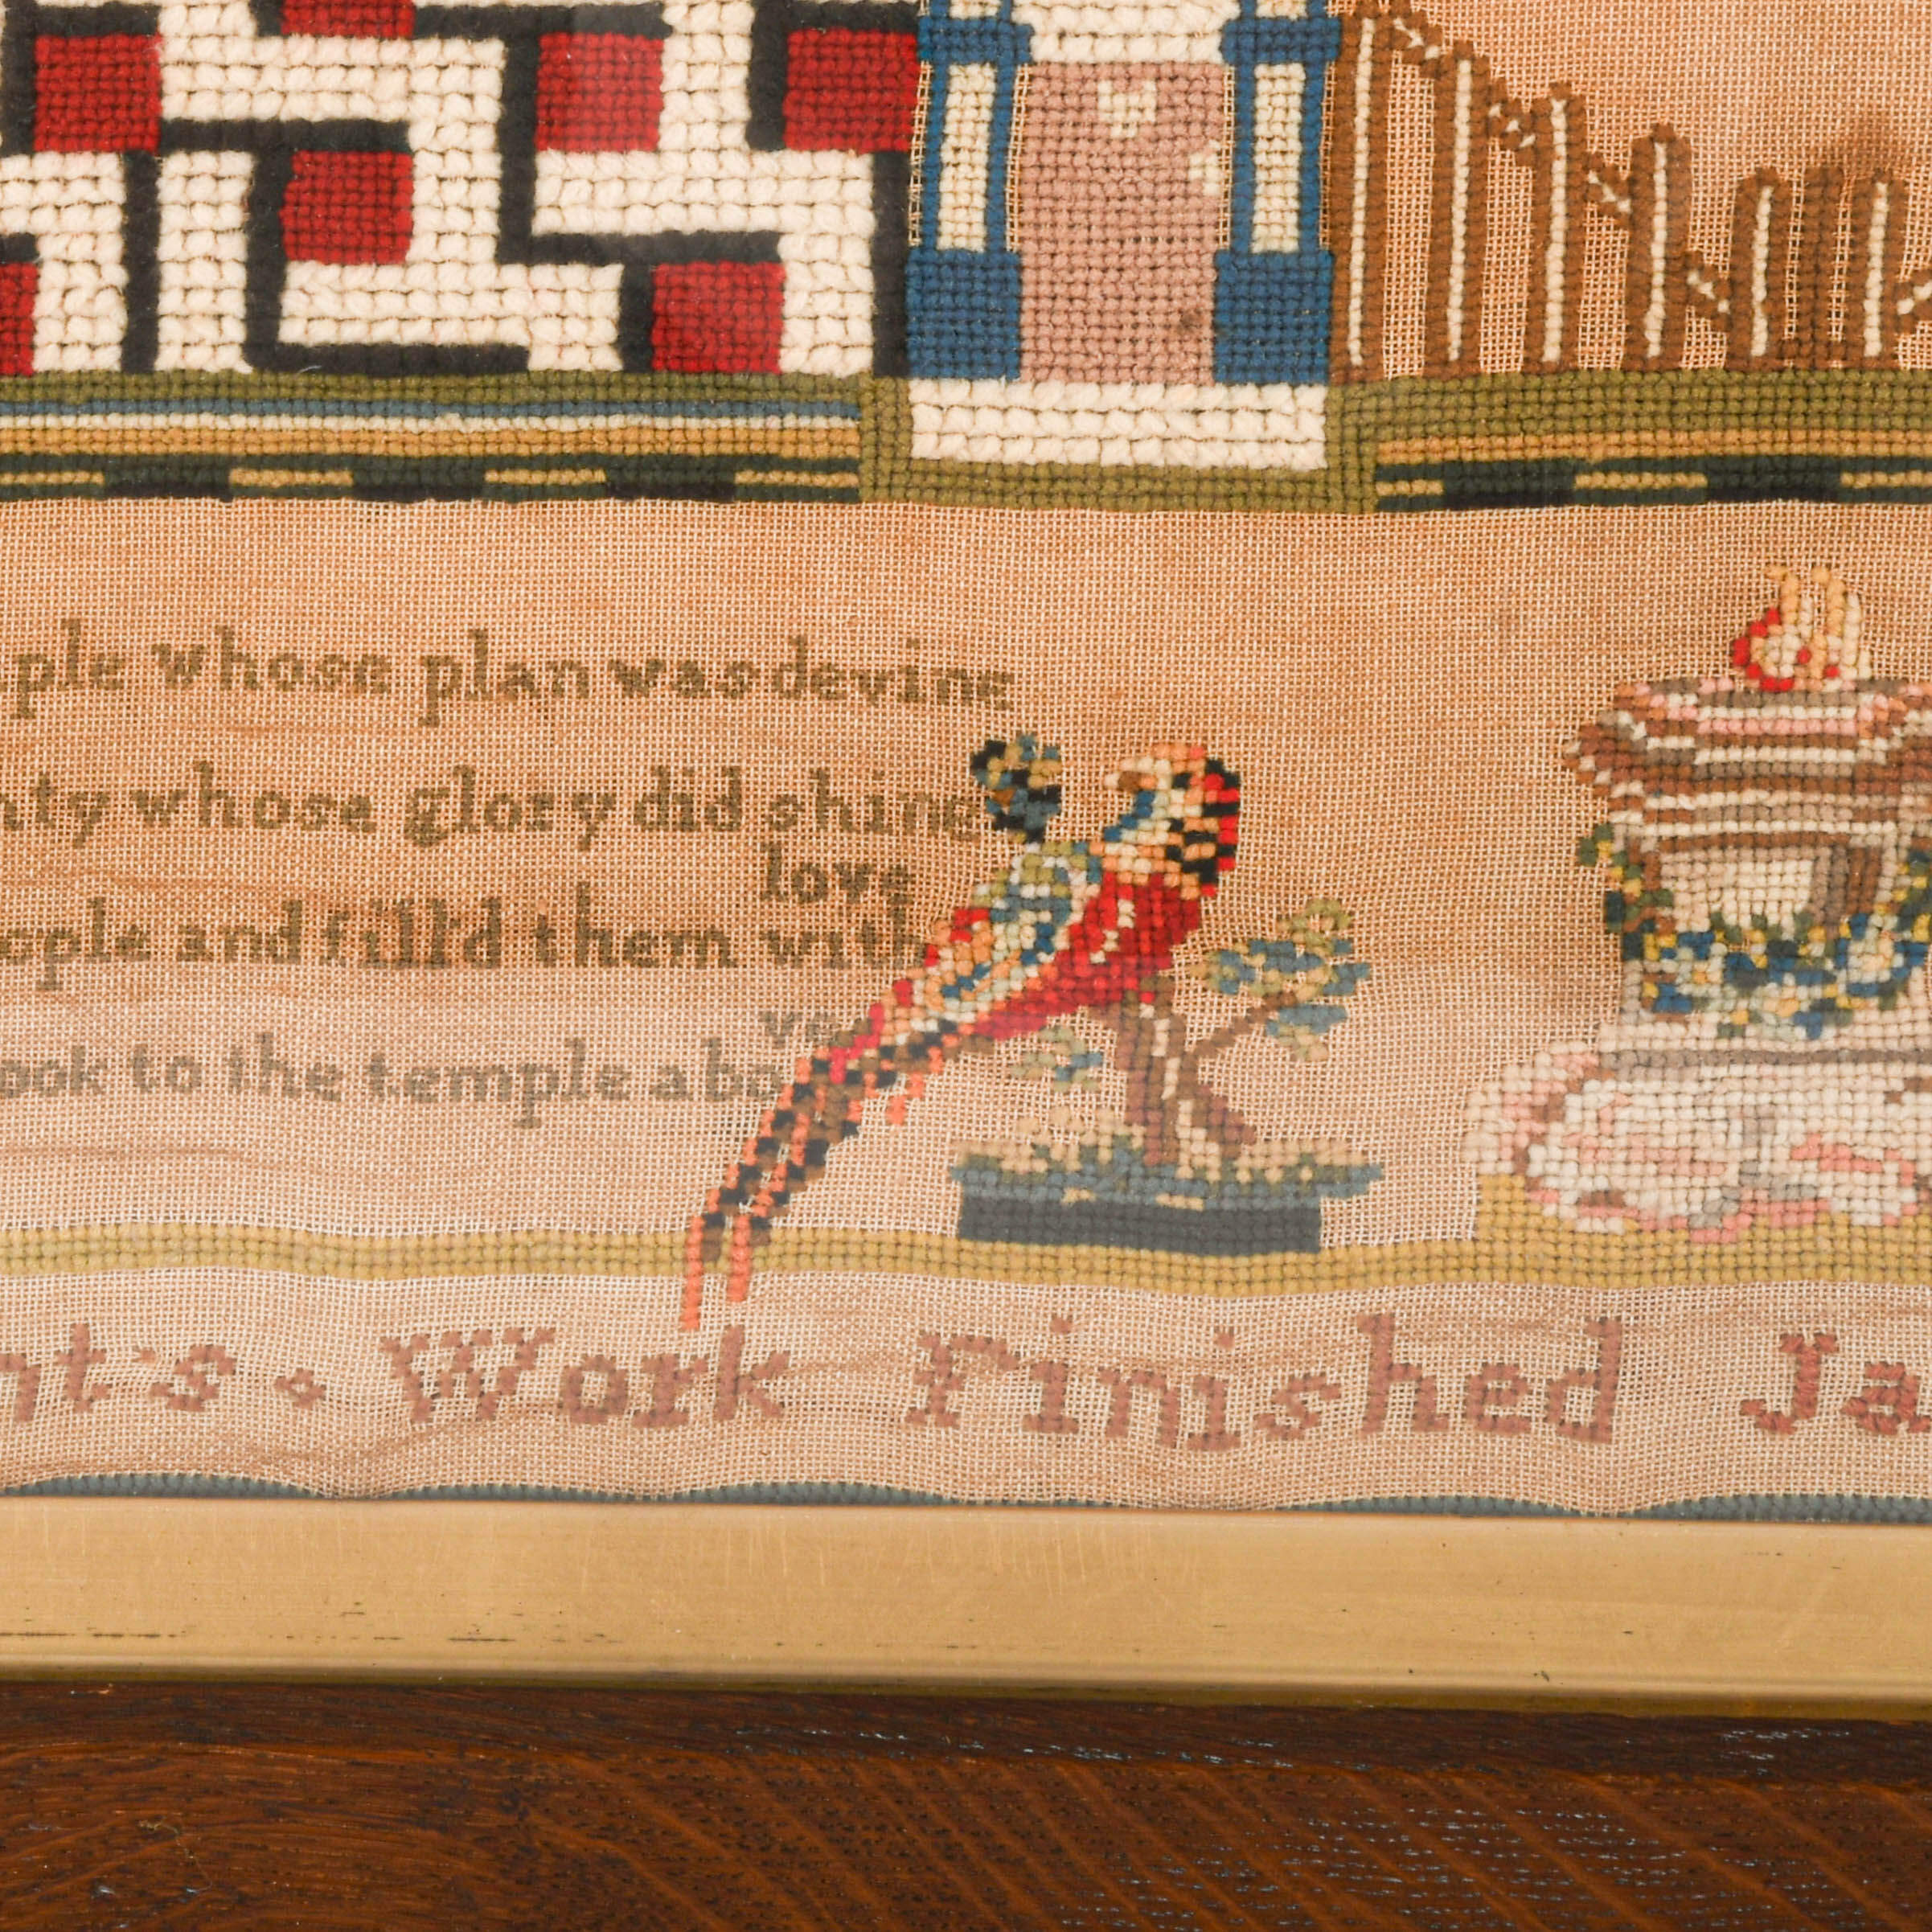 ple whose plan was devine
nty whose glory did shine
love
eple and fill'd them with
ve
ook to the temple abo
nt's . Work Finished Ja